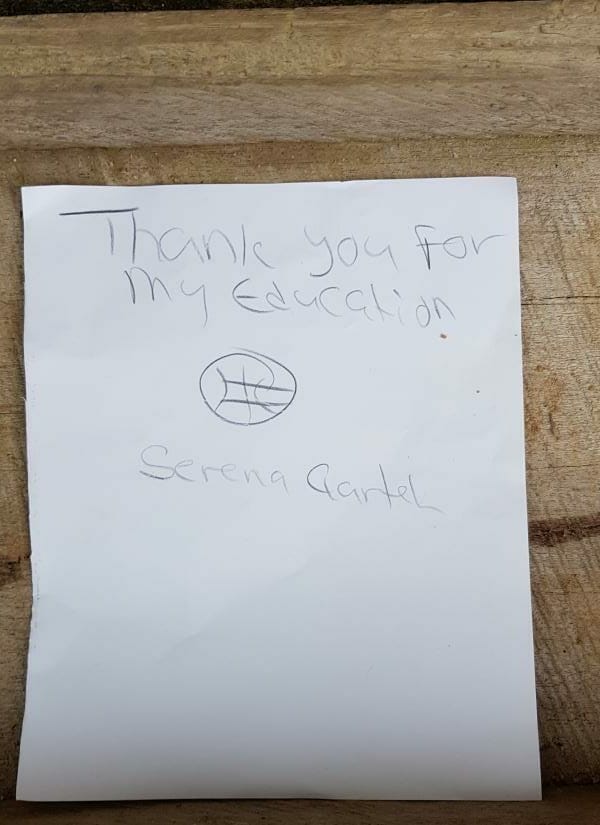 Thank you for
my Education
Serena Gartel